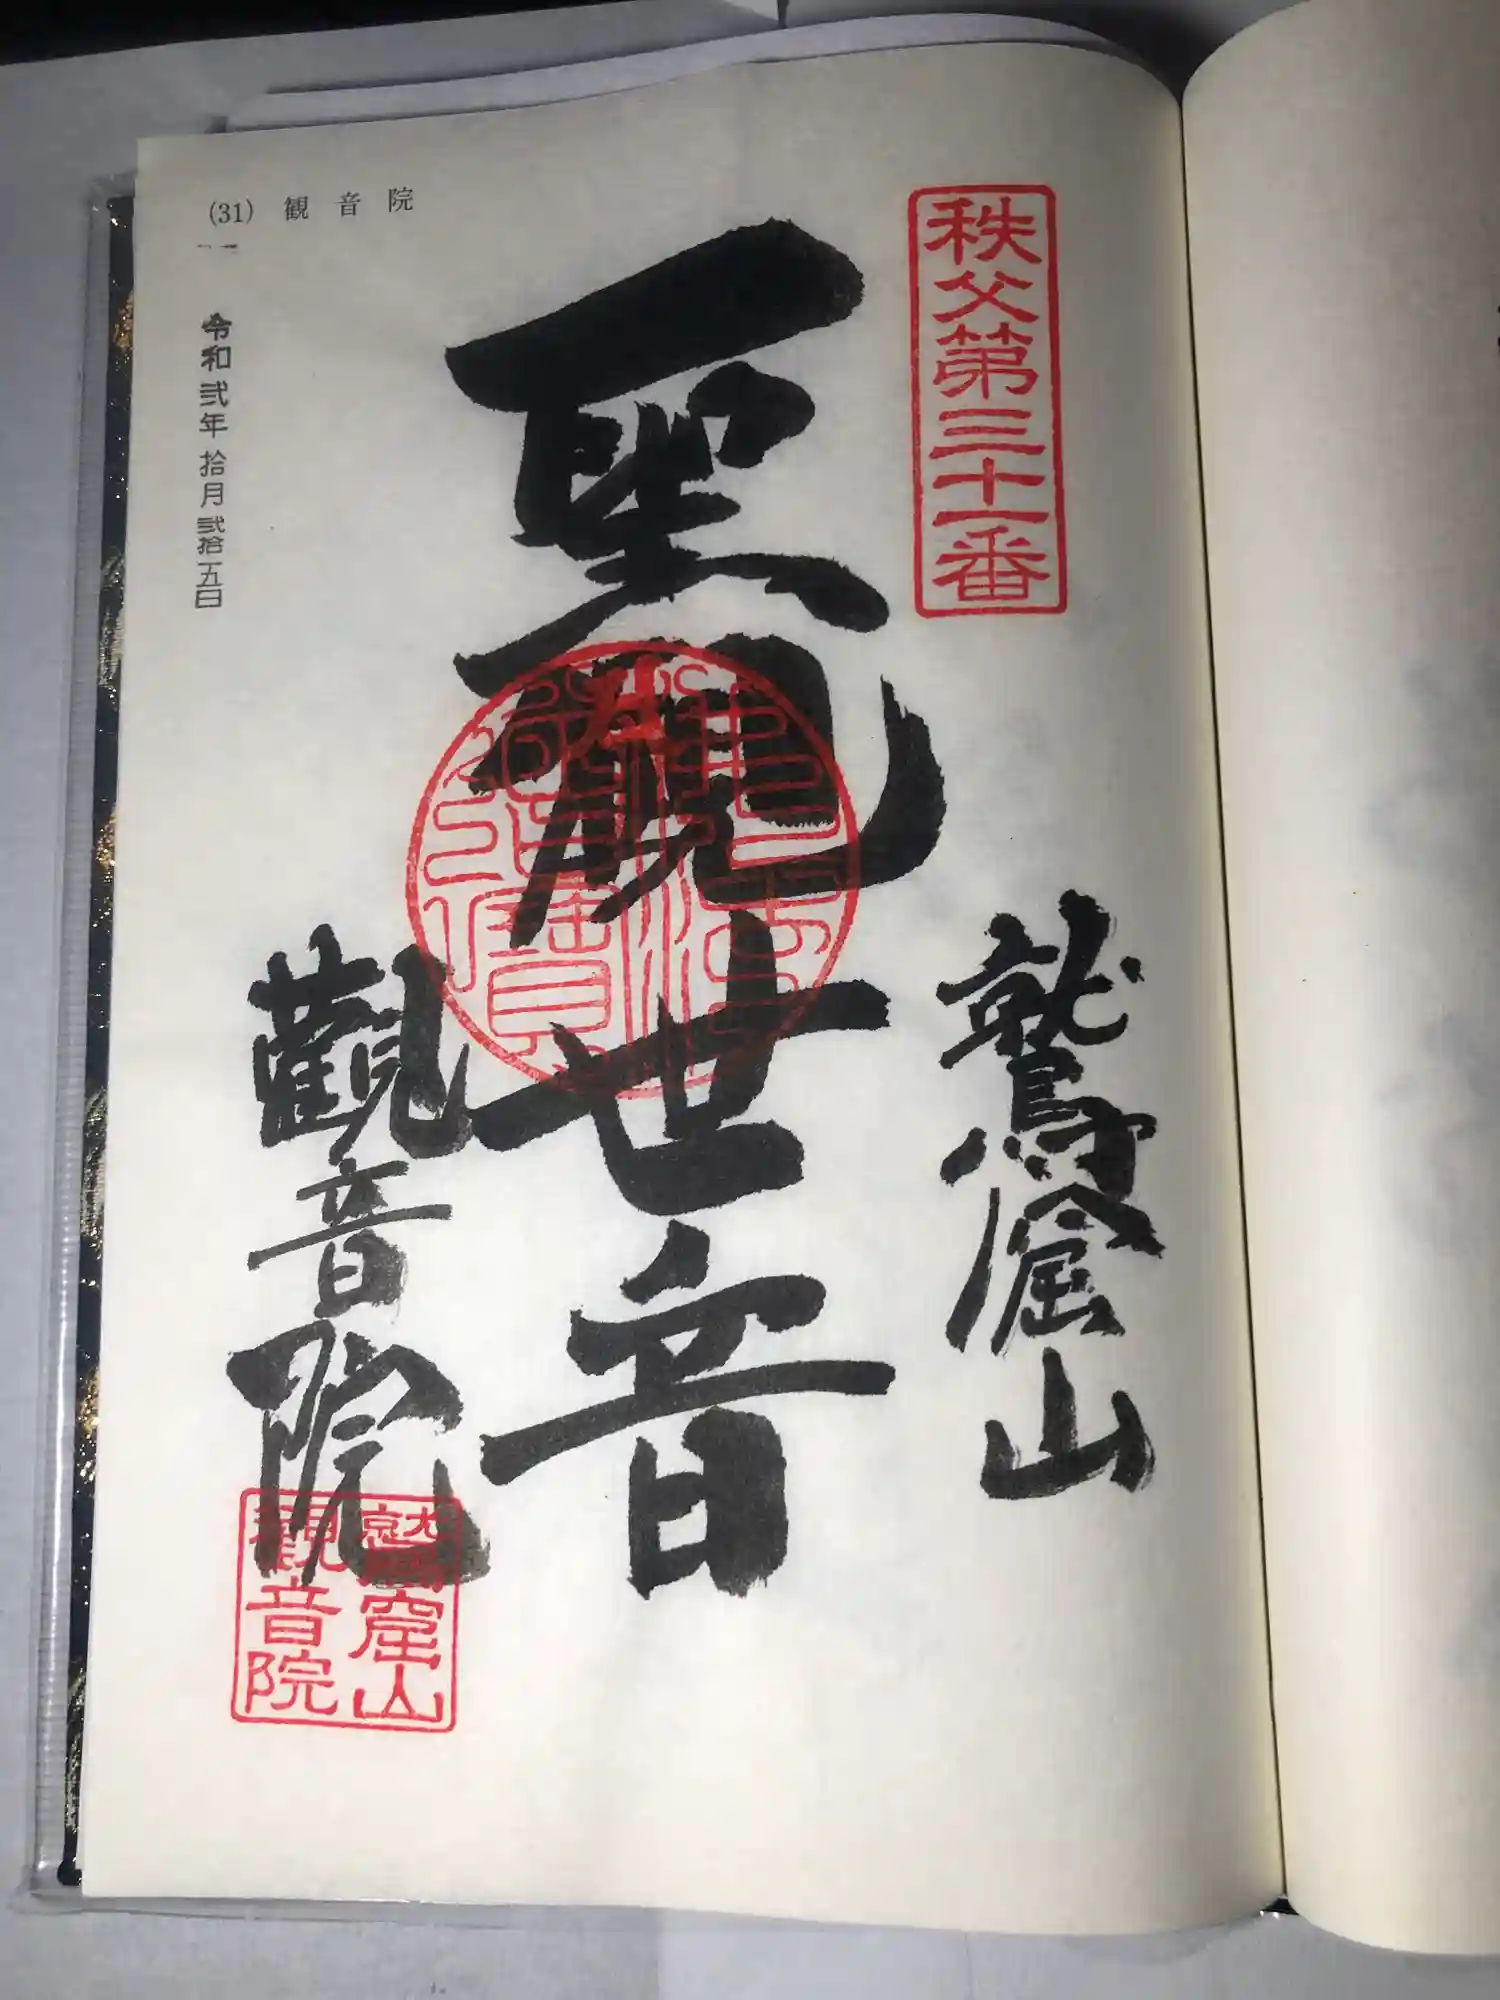 (31) 観音院
秩父第三十一番
鷲窟山
聖観世音
觀音院
令和弐年拾月弐拾五日
佛法
僧寶
鷲窟山
観音院